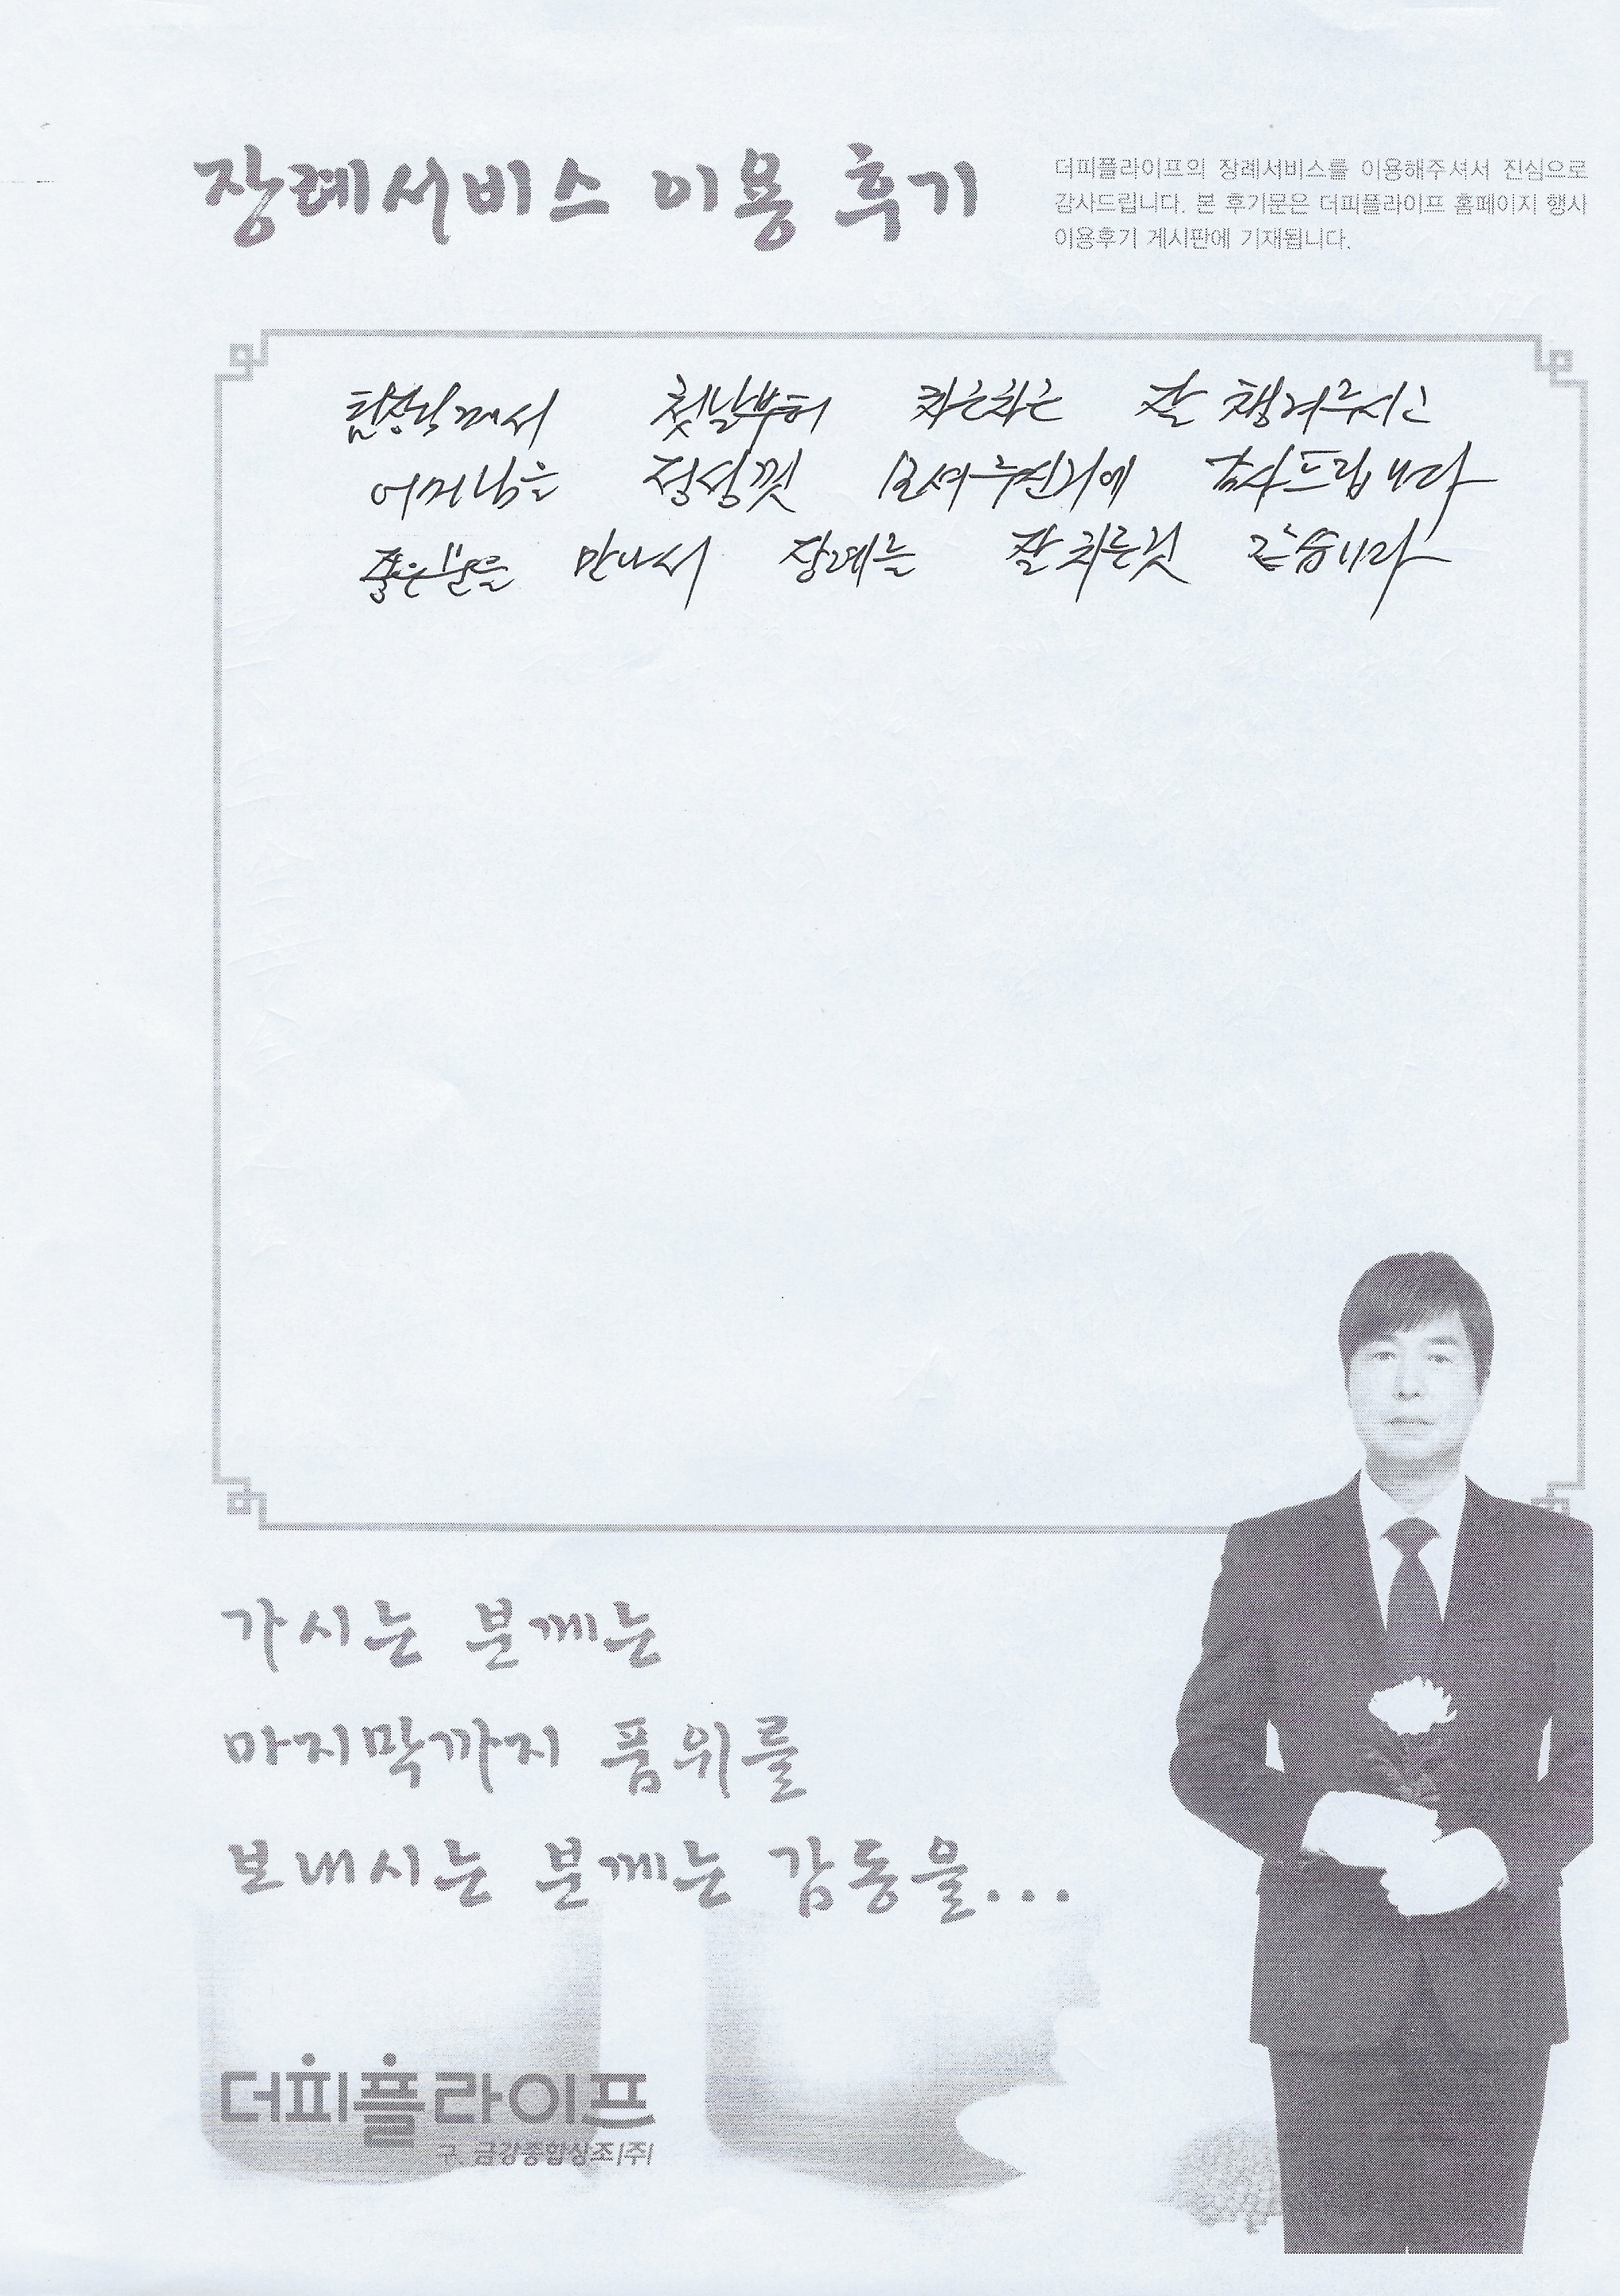 장례서비스 이용 후기
더피플라이프의 장례서비스를 이용해주셔서 진심으로
감사드립니다. 본 후기문은 더피플라이프 홈페이지 행사
이용후기 게시판에 기재됩니다.
팀장님께서 첫날부터 차근차근 잘 챙겨주시고
어머님을 정성껏 모셔주신거에 감사드립니다
좋은분을 만나서 장례는 잘 치른것 같습니다
가시는 분께는
마지막까지 품위를
보내시는 분께는 감동을...
더피플라이프
구. 금강종합상조(주)